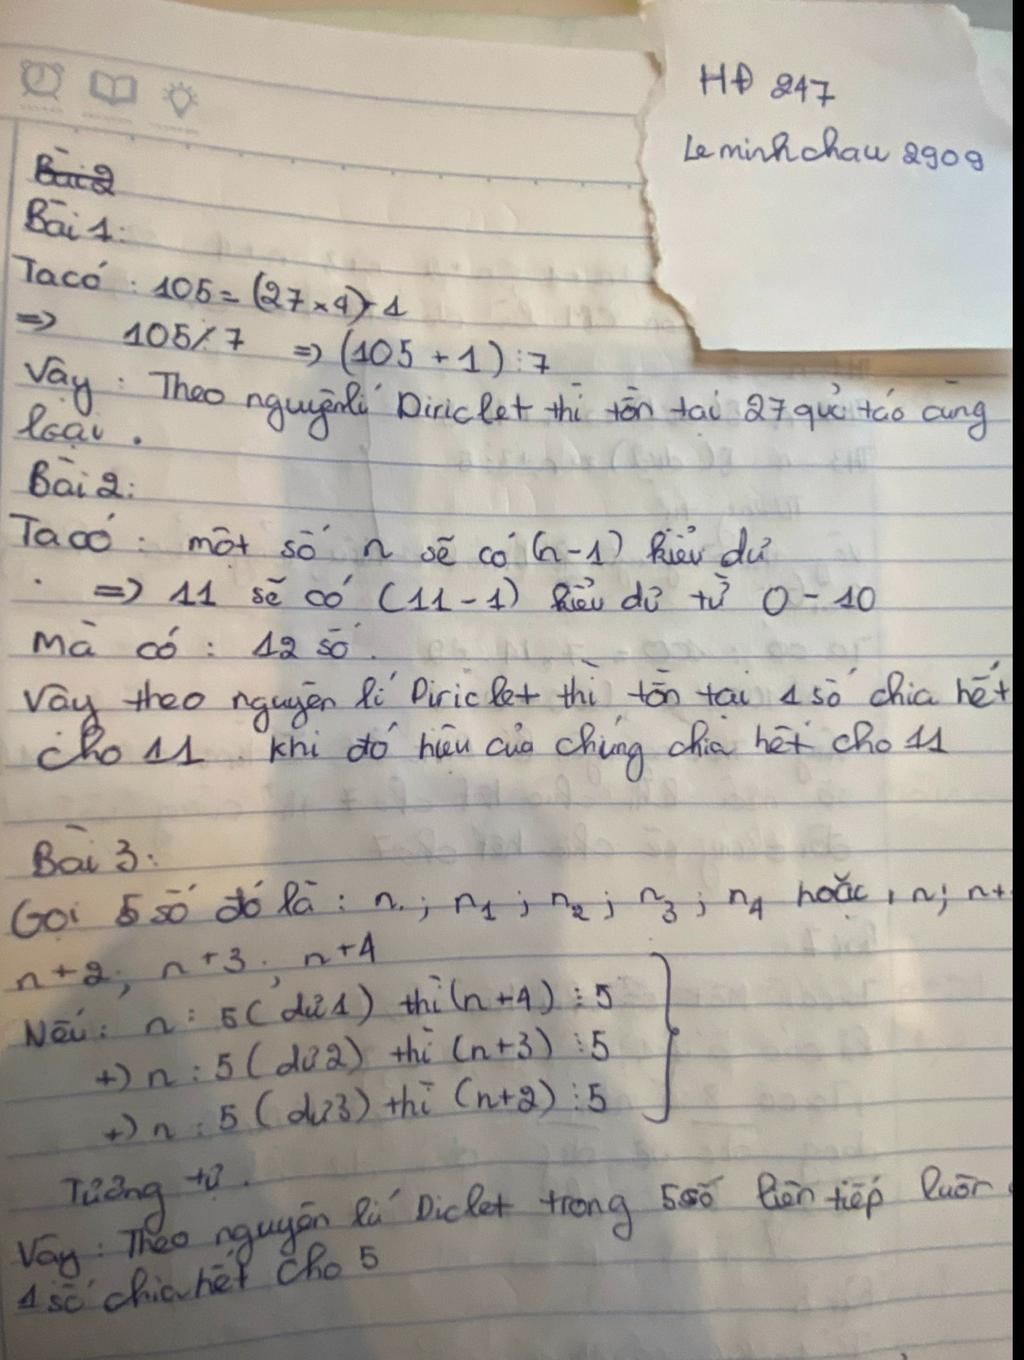 HĐ 247
Le minh chau 2909
Bài 2
Bài 1:
Ta có : 105 = (27 × 4) - 1
=> 105 ⋮̸ 7 => (105 + 1) ⋮ 7
Vậy : Theo nguyên lí Diriclet thì tồn tại 27 quả táo cùng
loại .
Bài 2:
Ta có : một số n sẽ có (n - 1) kiểu dư
=> 11 sẽ có (11 - 1) kiểu dư từ 0 - 10
Mà có : 12 số .
Vậy theo nguyên lí Diriclet thì tồn tại 1 số chia hết
cho 11 . khi đó hiệu của chúng chia hết cho 11
Bài 3:
Gọi 5 số đó là : n ; n1 ; n2 ; n3 ; n4 hoặc , n; n+
n+2 ; n+3 ; n+4
Nếu : n : 5 ( dư 1) thì (n+4) ⋮ 5
+) n : 5 ( dư 2) thì (n+3) ⋮ 5
+) n : 5 ( dư 3) thì (n+2) ⋮ 5
Tương tự .
Vậy : Theo nguyên lí Diclet trong 5 số liên tiếp luôn
1 số chia hết cho 5